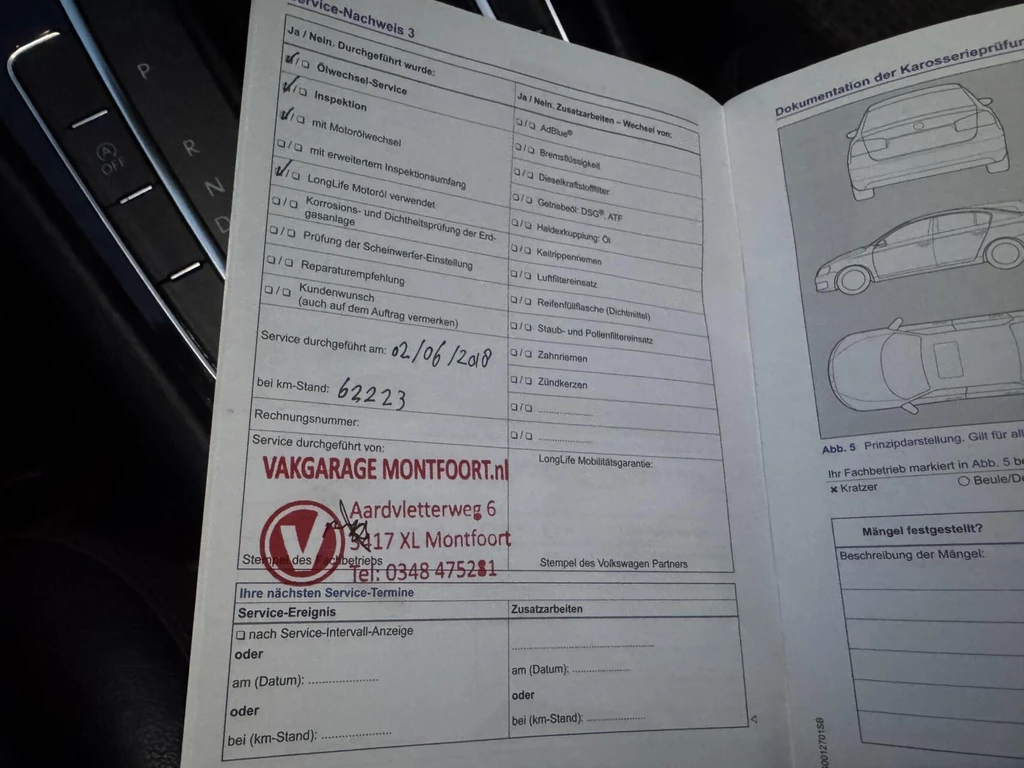 P
R
N
D
(A)
OFF
Service-Nachweis 3
Ja / Nein. Durchgeführt wurde:
✓/❑ Ölwechsel-Service
✓/❑ Inspektion
✓/❑ mit Motorölwechsel
❑/❑ mit erweitertem Inspektionsumfang
✓/❑ LongLife Motoröl verwendet
❑/❑ Korrosions- und Dichtheitsprüfung der Erd-
gasanlage
❑/❑ Prüfung der Scheinwerfer-Einstellung
❑/❑ Reparaturempfehlung
❑/❑ Kundenwunsch
(auch auf dem Auftrag vermerken)
Service durchgeführt am: 02/06/2018
bei km-Stand: 62223
Rechnungsnummer:
Service durchgeführt von:
VAKGARAGE MONTFOORT.nl
Aardvletterweg 6
3417 XL Montfoort
Tel: 0348 475281
Stempel des Fachbetriebs
Ja / Nein. Zusatzarbeiten – Wechsel von:
❑/❑ AdBlue®
❑/❑ Bremsflüssigkeit
❑/❑ Dieselkraftstofffilter
❑/❑ Getriebeöl: DSG®, ATF
❑/❑ Haldexkupplung: Öl
❑/❑ Keilrippenriemen
❑/❑ Luftfiltereinsatz
❑/❑ Reifenfüllflasche (Dichtmittel)
❑/❑ Staub- und Pollenfiltereinsatz
❑/❑ Zahnriemen
❑/❑ Zündkerzen
❑/❑ ................
❑/❑ ................
LongLife Mobilitätsgarantie:
Stempel des Volkswagen Partners
Ihre nächsten Service-Termine
Service-Ereignis
❑ nach Service-Intervall-Anzeige
oder
am (Datum): ...................
oder
bei (km-Stand): ...................
Zusatzarbeiten
...................
am (Datum): ................
oder
bei (km-Stand): ................
Dokumentation der Karosserieprüfun
Abb. 5 Prinzipdarstellung. Gilt für all
Ihr Fachbetrieb markiert in Abb. 5 be
× Kratzer
○ Beule/De
Mängel festgestellt?
Beschreibung der Mängel:
00012701SB